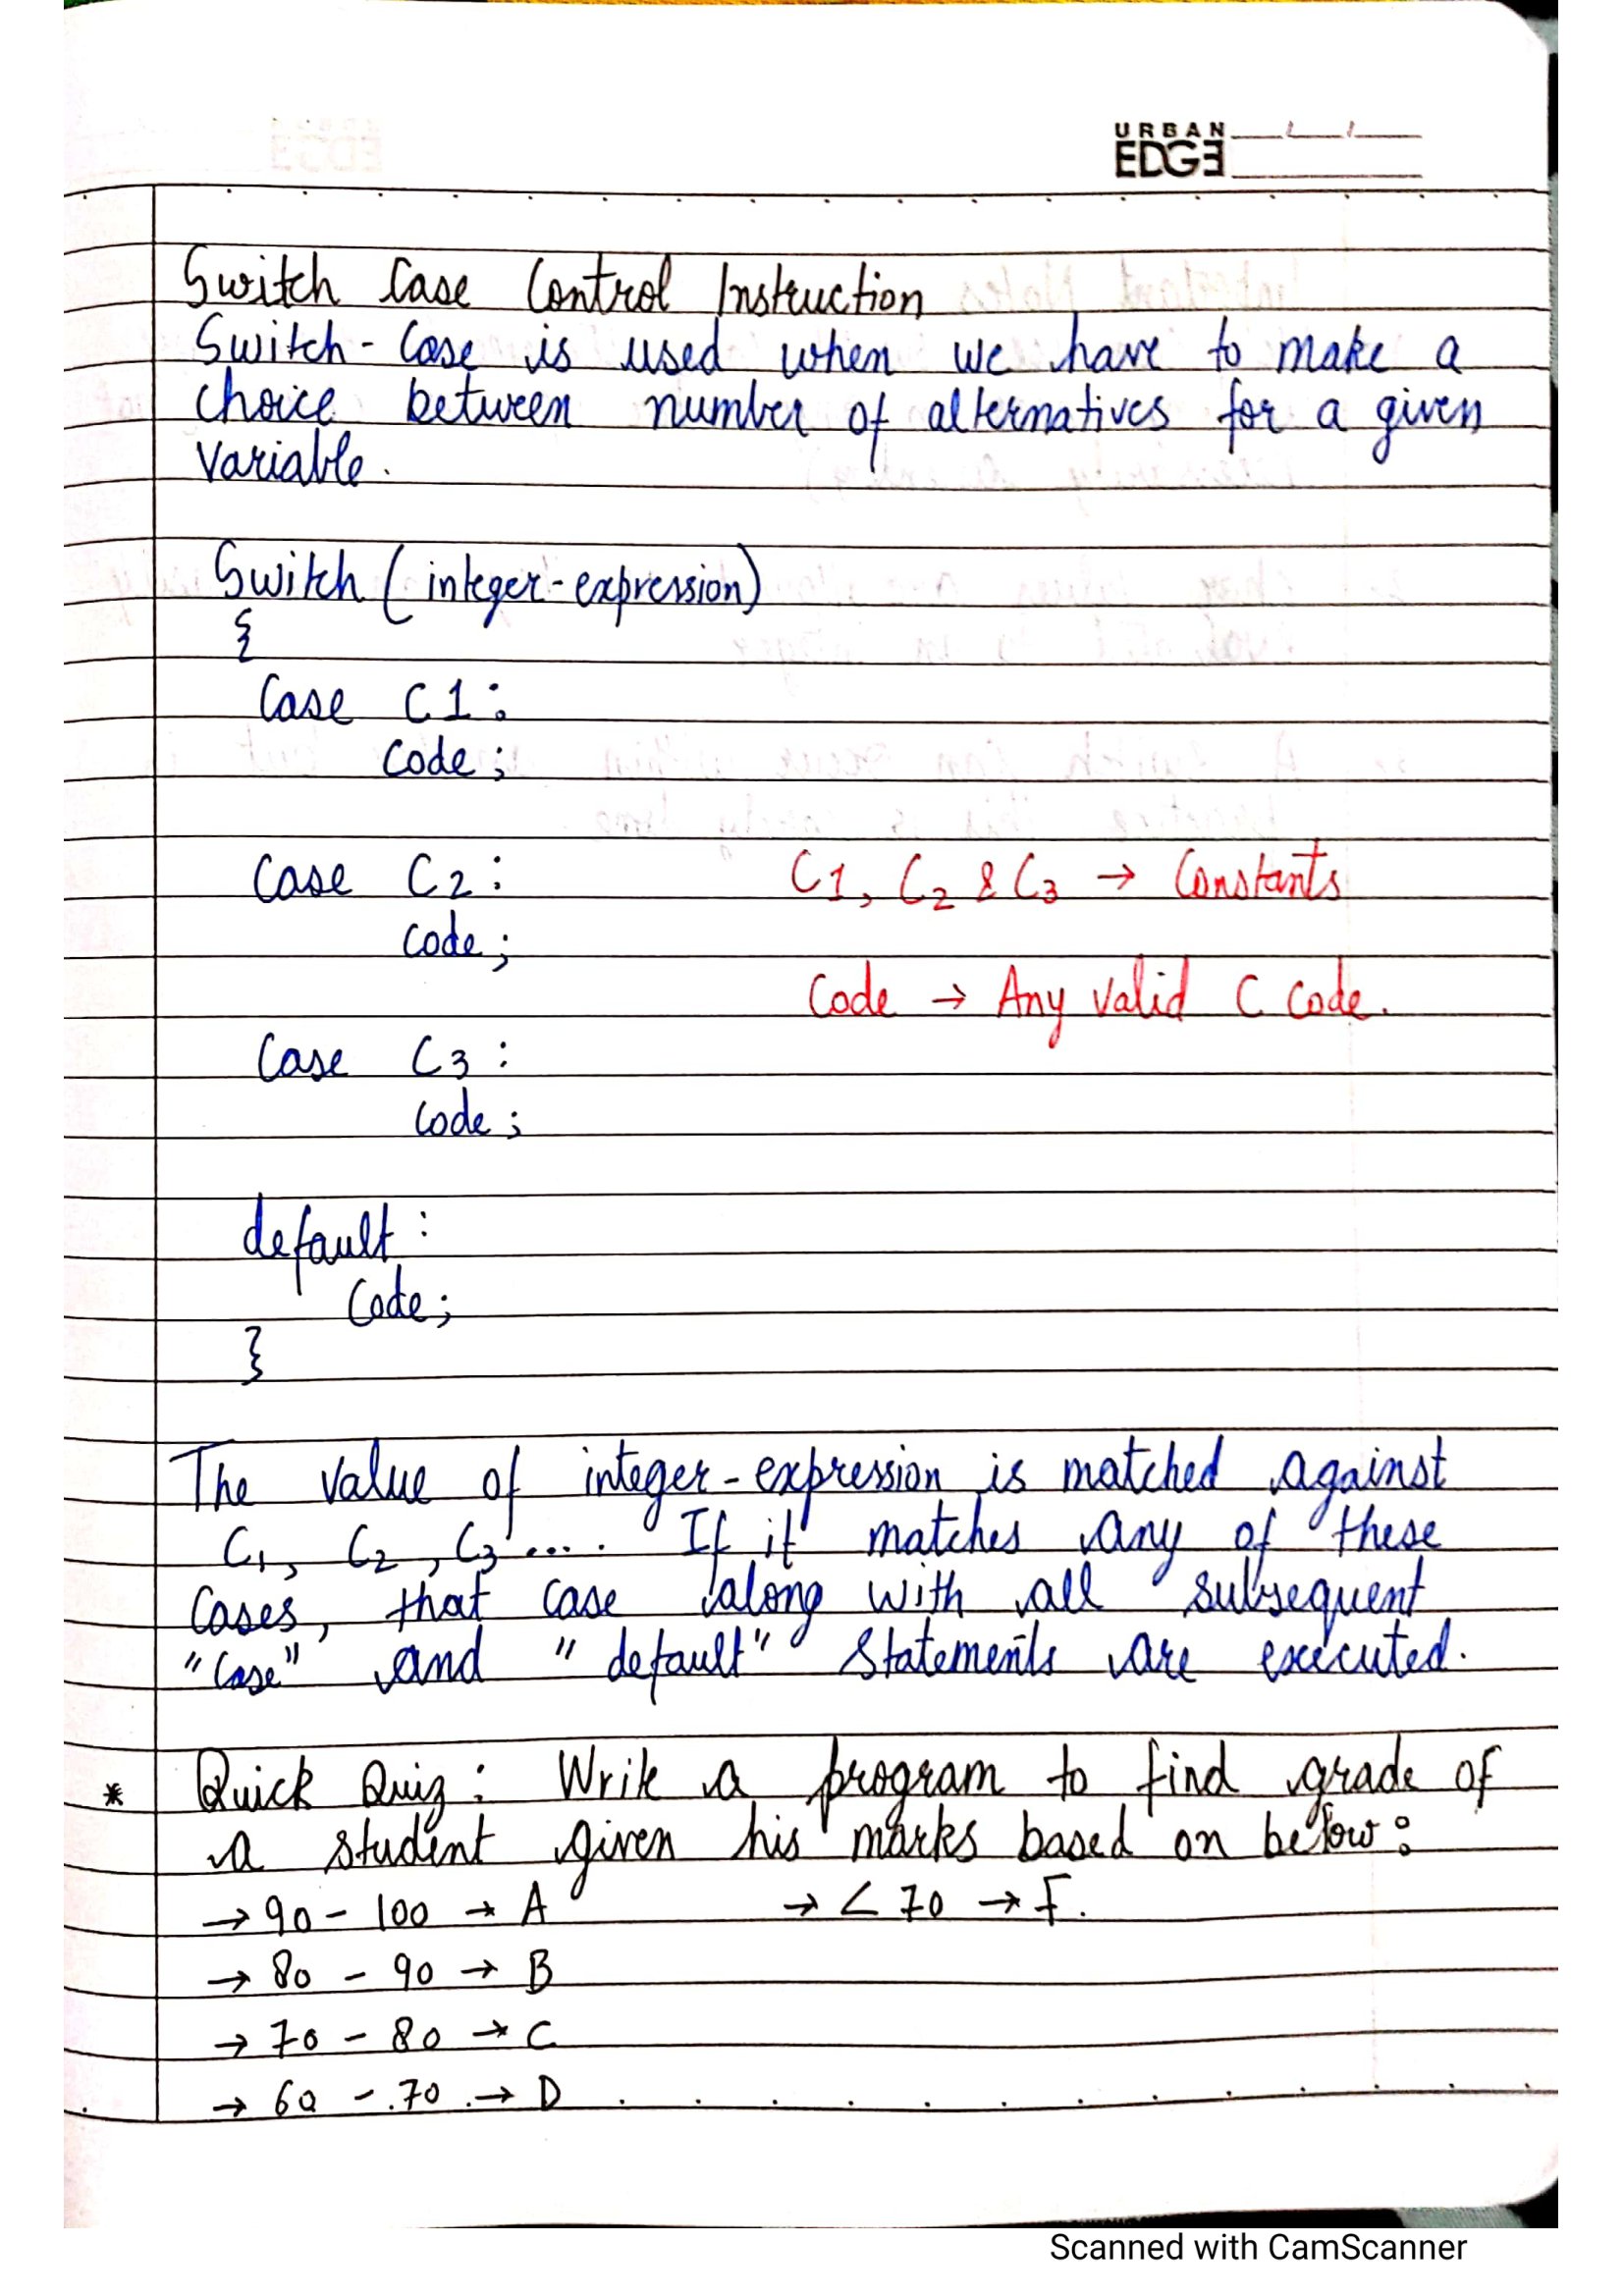 URBAN
EDGE
Switch Case Control Instruction
Switch-Case is used when we have to make a
choice between number of alternatives for a given
variable.
Switch (integer-expression)
{
Case C1:
Code;
Case C2:
C1, C2 & C3 → Constants
Code;
Code → Any valid C code.
Case C3:
Code;
default:
Code;
}
The value of integer-expression is matched against
C1, C2, C3 .... If it matches any of these
Cases, that case along with all subsequent
"Case" and "default" statements are executed.
* Quick Quiz: Write a program to find grade of
a student given his marks based on below:
→ 90 - 100 → A → < 70 → F.
→ 80 - 90 → B
→ 70 - 80 → C
→ 60 - 70 → D
Scanned with CamScanner